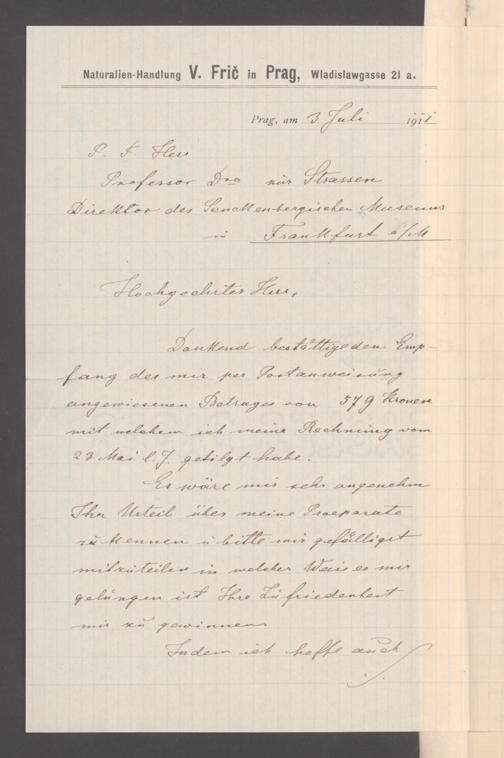 Naturalien-Handlung V. Frič in Prag, Wladislawgasse 21 a.
Prag, am 3 Juli 1911
P. T. Herr
Professor Dro zur Strassen
Direktor des Senckenbergischen Museums
in Frankfurt a/M
Hochgeehrter Herr,
Dankend bestättige den Emp-
fang des mir per Postanweisung
angewiesenen Betrages von 579 Kronen
mit welchem ich meine Rechnung vom
23 Mai l. J. getilgt habe.
Es wäre mir sehr angenehm
Ihr Urteil über meine Praeparate
zu kennen u bitte mir gefälligst
mitzuteilen in welcher Weis es mir
gelungen ist Ihre Zufriedenheit
mir zu gewinnen
Indem ich hoffe auch